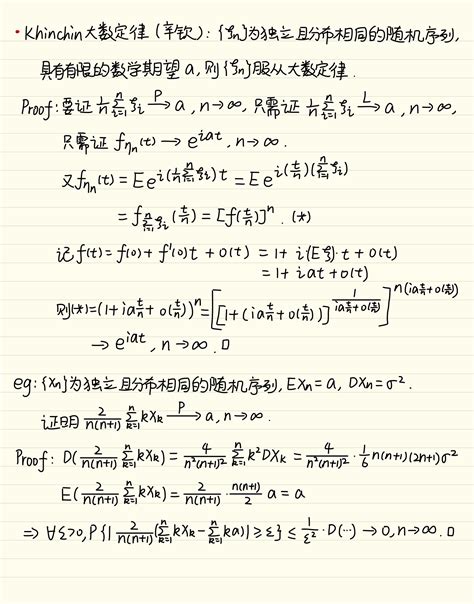 • Khinchin大数定律（辛钦）：{ξn}为独立且分布相同的随机序列,
具有有限的数学期望 a, 则{ξn}服从大数定律.
Proof: 要证 1/n ∑_{i=1}^{n} ξi →^P a, n→∞, 只需证 1/n ∑_{i=1}^{n} ξi →^L a, n→∞,
只需证 f_{ηn}(t) → e^{iat}, n→∞.
又f_{ηn}(t) = E e^{i(1/n ∑_{i=1}^{n} ξi)t} = E e^{i(t/n)(∑_{i=1}^{n} ξi)}
= f_{∑_{i=1}^{n} ξi}(t/n) = [f(t/n)]^n. (*)
记 f(t) = f(0) + f'(0)t + o(t) = 1 + i(Eξ)·t + o(t)
= 1 + iat + o(t)
则(*) = (1 + ia t/n + o(t/n))^n = [[1 + (ia t/n + o(t/n))]^{1/(ia t/n + o(t/n))}]^{n(ia t/n + o(t/n))}
→ e^{iat}, n→∞. □
eg: {Xn}为独立且分布相同的随机序列, EXn = a, DXn = σ².
证明 2/(n(n+1)) ∑_{k=1}^{n} kXk →^P a, n→∞.
Proof: D(2/(n(n+1)) ∑_{k=1}^{n} kXk) = 4/(n²(n+1)²) ∑_{k=1}^{n} k²DXk = 4/(n²(n+1)²) · 1/6 n(n+1)(2n+1)σ²
E(2/(n(n+1)) ∑_{k=1}^{n} kXk) = 2/(n(n+1)) · n(n+1)/2 a = a
⇒ ∀ε>0, P{|2/(n(n+1)) (∑_{k=1}^{n} kXk − ∑_{k=1}^{n} ka)| ≥ ε} ≤ 1/ε² · D(···) → 0, n→∞. □